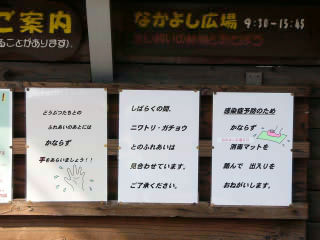 ご案内
ることがあります)。
なかよし広場 9:30-15:45
どうぶつたちとの
ふれあいのあとには
かならず
手をあらいましょう!!
しばらくの間、
ニワトリ・ガチョウ
とのふれあいは
見合わせています。
ご了承ください。
感染症予防のため
かならず
消毒マットを
踏んで 出入りを
おねがいします。